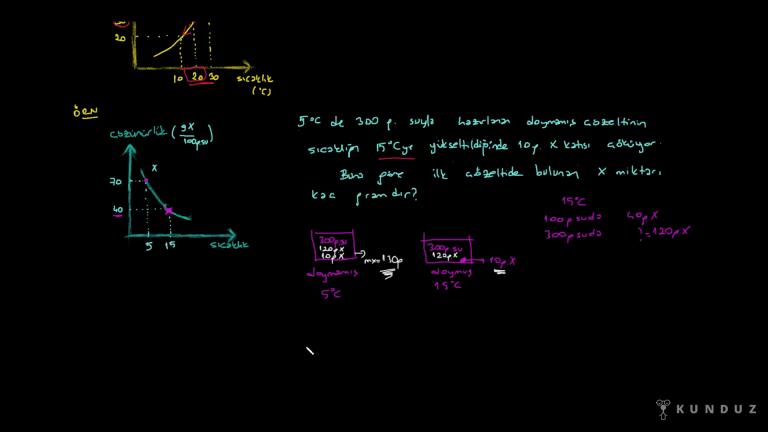 20
10 20 30
sıcaklık
(°C)
ÖRN
çözünürlük (gX/100g su)
X
70
40
5 15
sıcaklık
5°C de 300 g suyla hazırlanan doymamış çözeltinin
sıcaklığı 15°C ye yükseltildiğinde 10 g X katısı çöküyor.
Buna göre ilk çözeltide bulunan X miktarı
kaç gramdır?
15°C
100 g suda 40 g X
300 g suda ?=120 g X
300 g su
120 g X
10 g X
mx=130g
doymamış
5°C
300 g su
120 g X
10 g X
doymuş
15°C
KUNDUZ